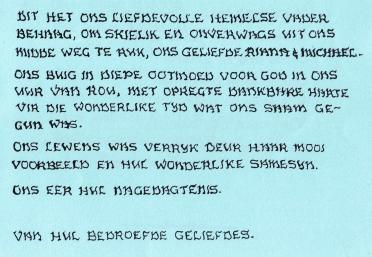 DIT HET ONS LIEFDEVOLLE HEMELSE VADER
BEHAAG, OM SKIELIK EN ONVERWAGS UIT ONS
MIDDE WEG TE RUK, ONS GELIEFDE RIANA & MICHAEL.
ONS BUIG IN DIEPE OOTMOED VOOR GOD IN ONS
UUR VAN ROU, MET OPREGTE DANKBARE HARTE
VIR DIE WONDERLIKE TYD WAT ONS SAAM GE-
GUN WAS.
ONS LEWENS WAS VERRYK DEUR HAAR MOOI
VOORBEELD EN HUL WONDERLIKE SAMESYN.
ONS EER HUL NAGEDAGTENIS.
VAN HUL BEDROEFDE GELIEFDES.